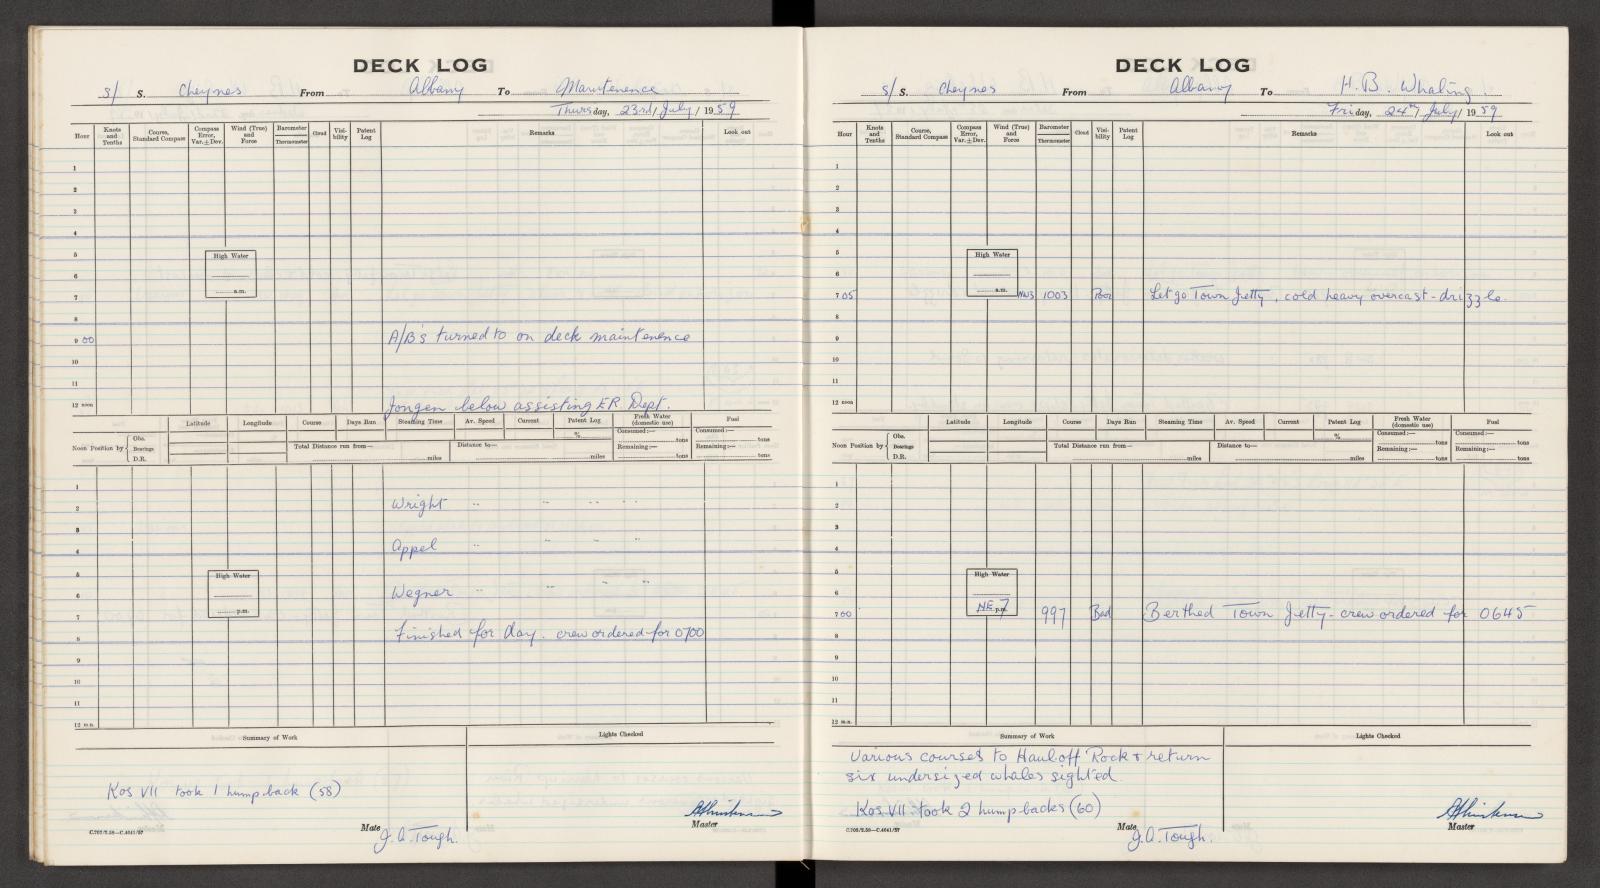 DECK LOG
s/ S. Cheynes From Albany To Maintenence
Thursday, 23rd/July/1959
Hour Knots and Tenths Course, Standard Compass Compass Error, Var.±Dev. Wind (True) and Force Barometer Thermometer Cloud Visibility Patent Log Remarks Look out
1
2
3
4
5 High Water
6
7 a.m.
8
9 00 A/B's turned to on deck maintenence
10
11
12 noon Jongen below assisting E.R. Dept.
Noon Position by Obs. Bearings D.R. Latitude Longitude Course Days Run Steaming Time Av. Speed Current Patent Log % Fresh Water (domestic use) Fuel
Consumed:— tons Consumed:— tons
Total Distance run from— miles Distance to— miles Remaining:— tons Remaining:— tons
1
2 Wright " " " "
3
4 Appel " " "
5 High Water
6 Wegner " " " "
7 p.m.
8 Finished for day. crew ordered for 0700
9
10
11
12 m.n.
Summary of Work Lights Checked
Kos VII took 1 humpback (58)
C.702/2.58—C.4041/57 Mate J.A. Tough. Master
DECK LOG
s/ S. Cheynes From Albany To H.B. Whaling.
Friday, 24th/July/1959
Hour Knots and Tenths Course, Standard Compass Compass Error, Var.±Dev. Wind (True) and Force Barometer Thermometer Cloud Visibility Patent Log Remarks Look out
1
2
3
4
5 High Water
6
7 05 a.m. NW3 1003 Poor Let go Town Jetty, cold heavy overcast - drizzle.
8
9
10
11
12 noon
Noon Position by Obs. Bearings D.R. Latitude Longitude Course Days Run Steaming Time Av. Speed Current Patent Log % Fresh Water (domestic use) Fuel
Consumed:— tons Consumed:— tons
Total Distance run from— miles Distance to— miles Remaining:— tons Remaining:— tons
1
2
3
4
5 High Water
6
7 00 NE 7 p.m. 997 Bad Berthed Town Jetty - crew ordered for 0645
8
9
10
11
12 m.n.
Summary of Work Lights Checked
Various courses to Hauloff Rock & return
six undersized whales sighted.
Kos VII took 2 humpbacks (60)
C.702/2.58—C.4041/57 Mate J.A. Tough. Master